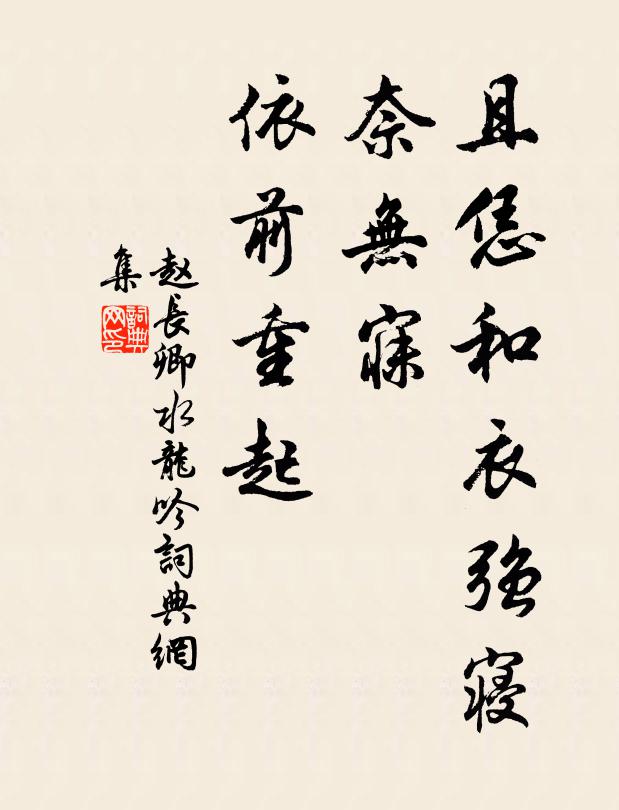 且恁和衣強寝
奈無寐
依前重起
赵長卿水龍吟詞典網
集
詞典
网印